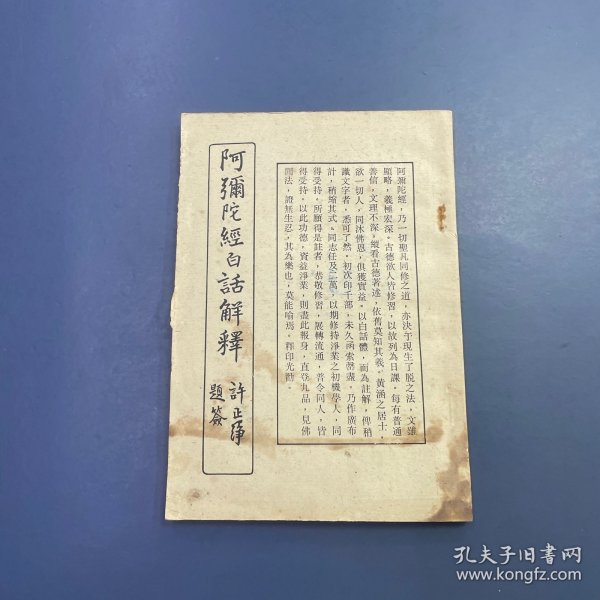 阿彌陀經，乃一切聖凡同修之道，亦決于現生了脫之法，文雖
顯略，義極宏深。古德欲人皆修習，以故列為日課。每有普通
善信，文理不深，縱看古德著述，依舊莫知其義。黃涵之居士，
欲一切人，同沐佛恩，俱獲實益。以白話體，而為註解，俾稍
識文字者，悉可了然。初次印千部，未久函索罄盡，乃作廣布
計，稍縮其式。同志任及二萬，以期修持淨業之初機學人，同
得受持。所願得是註者，恭敬修習，展轉流通，普令同人，皆
得受持。以此功德，資益淨業，則盡此報身，直登九品，見佛
聞法，證無生忍，其為樂也，莫能喻焉。釋印光謹
阿彌陀經白話解釋
許止淨
題簽
孔夫子旧书网
www.kongfz.com